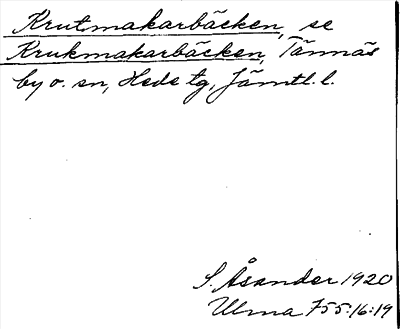 Krutmakarbäcken, se
Krukmakarbäcken, Tännäs
by o. sn, Hede tg, Jämtl. l.
S. Åsander 1920
Ulma 755:16:19